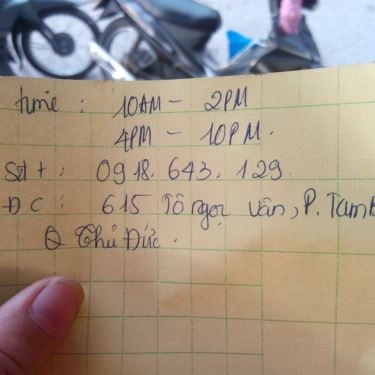 time : 10AM - 2PM
4PM - 10PM.
Sđt : 0918. 643. 129.
ĐC : 615 Tô Ngọc Vân, P. Tam
Q Thủ Đức.